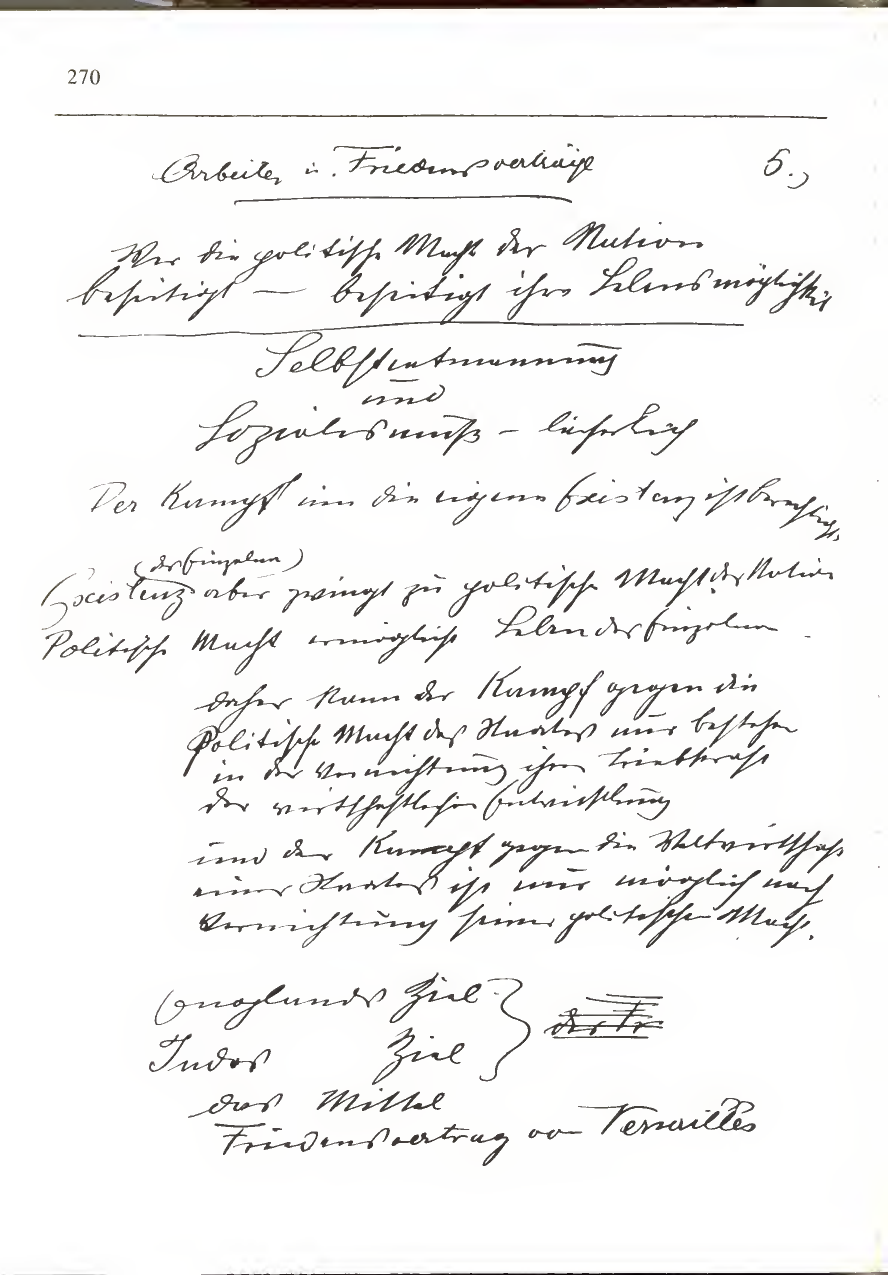 270
Arbeiter u. Friedensverträge 5.)
Wer die politische Macht der Nation
beseitigt — beseitigt ihre Lebensmöglichkeit
Selbstentmannung
und
Sozialismuß – lächerlich
Der Kampf um die eigene Existenz ist berechtigt.
(des Einzelnen)
Existenz aber zwingt zu politische Macht der Nation
Politische Macht ermöglicht Leben des Einzelnen
daher kann der Kampf gegen die
Politische Macht des Staates nur bestehen
in der Vernichtung ihrer Triebkraft
der wirtschaftlichen Entwicklung
und der Kampf gegen die Weltwirtschaft
eines Staates ist nur möglich nach
Vernichtung seiner politischen Macht.
Englands Ziel
Judas Ziel
der Fr
das Mittel
Friedensvertrag von Versailles